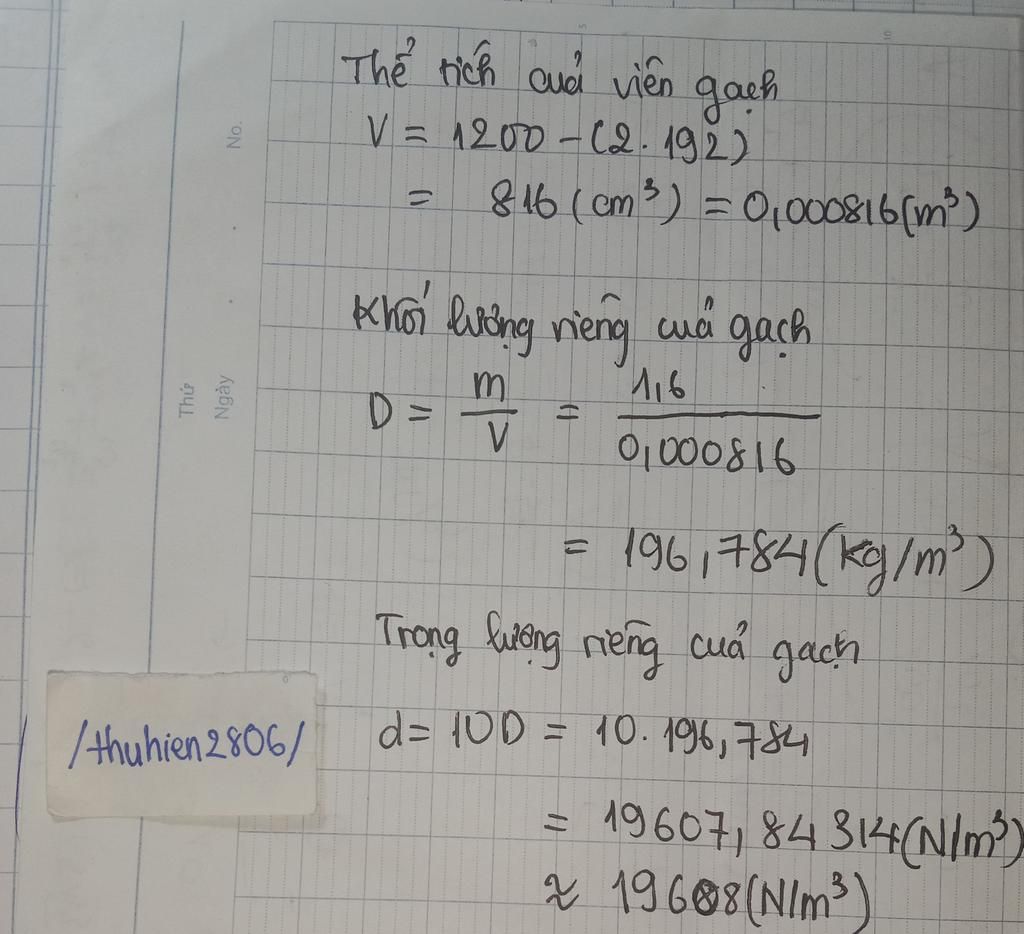 No.
Thứ
Ngày
Thể tích cuả viên gạch
V = 1200 - (2.192)
= 816 (cm³) = 0,000816 (m³)
Khối lượng riêng cuả gạch
D = m/V = 1,6/0,000816
= 196,784 (kg/m³)
Trọng lượng riêng cuả gạch
d = 10D = 10.196,784
= 19607,84314 (N/m³)
≈ 19608 (N/m³)
/thuhien2806/